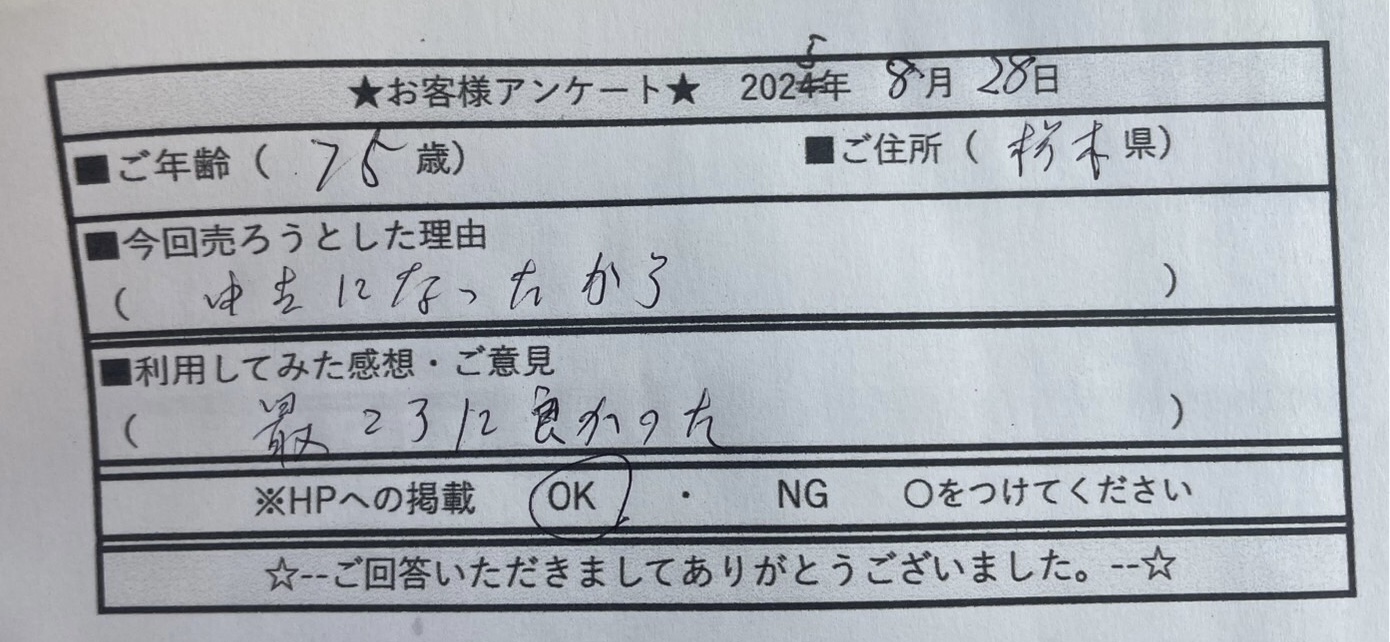 ★お客様アンケート★ 2025年 8月 28日
■ご年齢 ( 75 歳) ■ご住所 ( 栃木 県)
■今回売ろうとした理由
( になったから )
■利用してみた感想・ご意見
( 最 に良かった )
※HPへの掲載 OK ・ NG ○をつけてください
☆--ご回答いただきましてありがとうございました。--☆